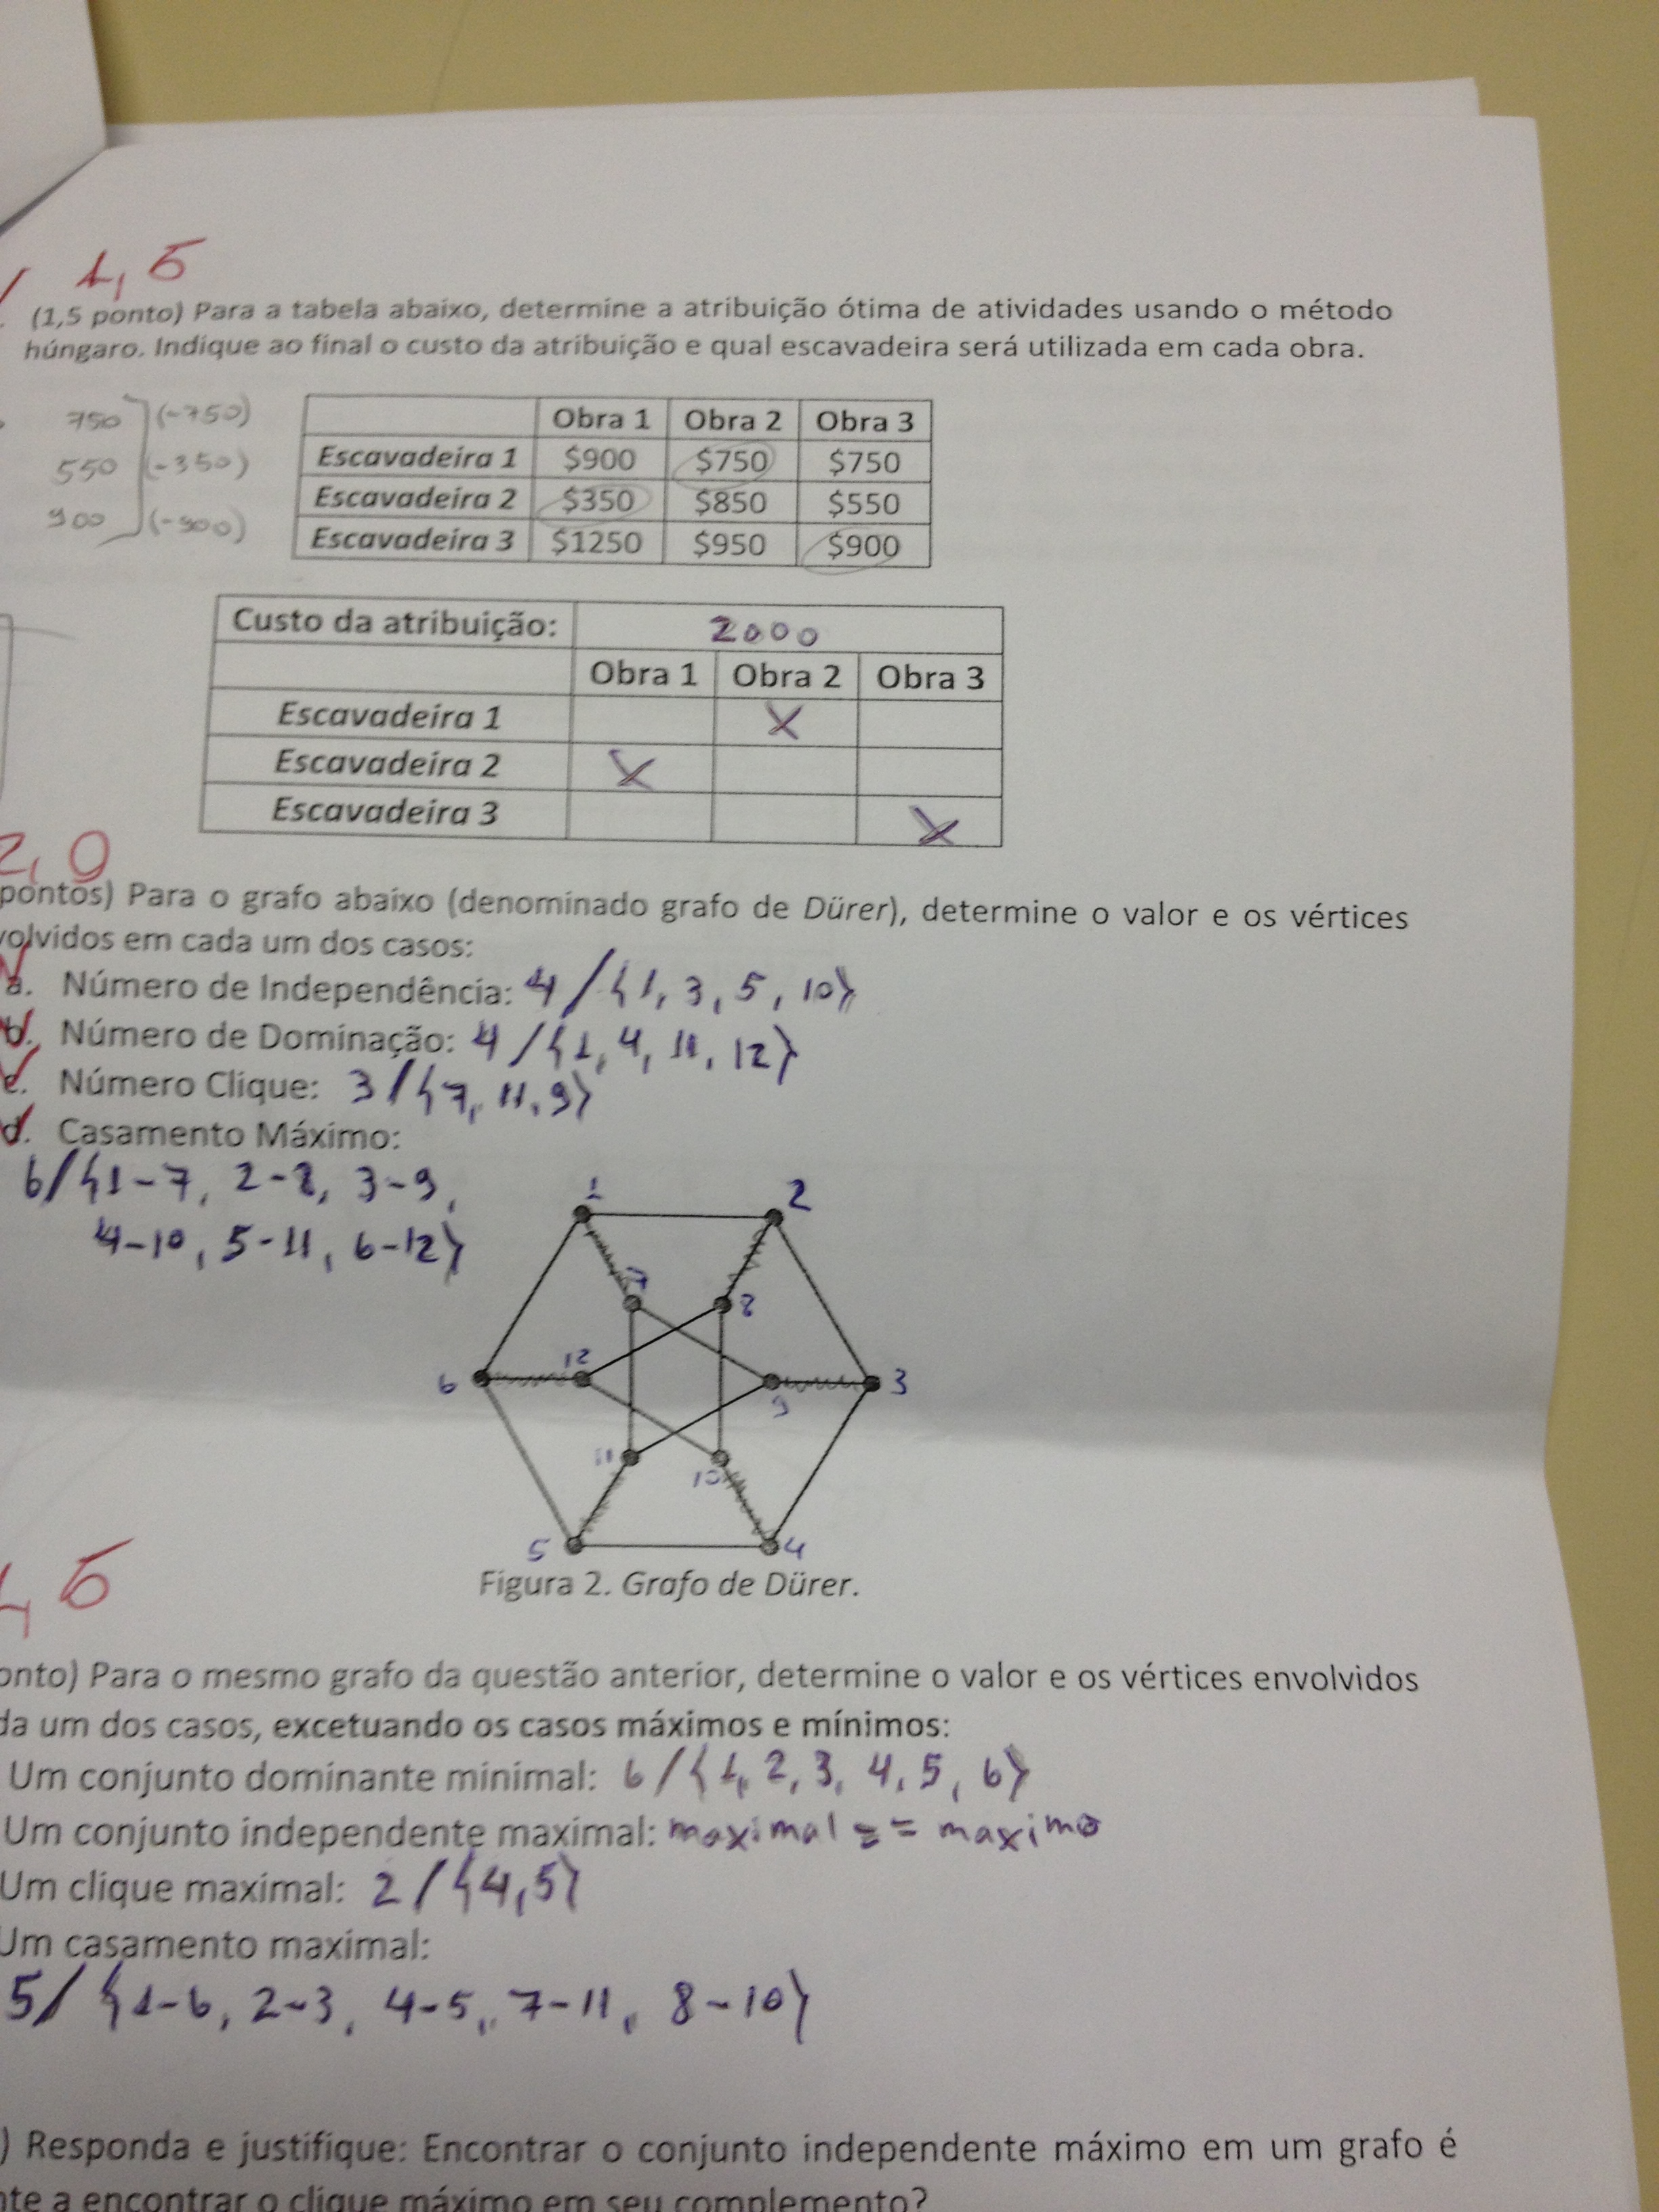 1,5
(1,5 ponto) Para a tabela abaixo, determine a atribuição ótima de atividades usando o método
húngaro. Indique ao final o custo da atribuição e qual escavadeira será utilizada em cada obra.
750 (-750)
550 (-350)
900 (-900)
Obra 1 Obra 2 Obra 3
Escavadeira 1 $900 $750 $750
Escavadeira 2 $350 $850 $550
Escavadeira 3 $1250 $950 $900
Custo da atribuição: 2000
Obra 1 Obra 2 Obra 3
Escavadeira 1 X
Escavadeira 2 X
Escavadeira 3 X
2,0
pontos) Para o grafo abaixo (denominado grafo de Dürer), determine o valor e os vértices
volvidos em cada um dos casos:
a. Número de Independência: 4 / {1, 3, 5, 10}
b. Número de Dominação: 4 / {1, 4, 11, 12}
c. Número Clique: 3 / {7, 11, 9}
d. Casamento Máximo:
6 / {1-7, 2-8, 3-9,
4-10, 5-11, 6-12}
1 2
7 8
6 12 9 3
11 10
5 4
Figura 2. Grafo de Dürer.
1,5
onto) Para o mesmo grafo da questão anterior, determine o valor e os vértices envolvidos
da um dos casos, excetuando os casos máximos e mínimos:
Um conjunto dominante minimal: 6 / {1, 2, 3, 4, 5, 6}
Um conjunto independente maximal: maximal == maximo
Um clique maximal: 2 / {4,5}
Um casamento maximal:
5 / {1-6, 2-3, 4-5, 7-11, 8-10}
) Responda e justifique: Encontrar o conjunto independente máximo em um grafo é
nte a encontrar o clique máximo em seu complemento?